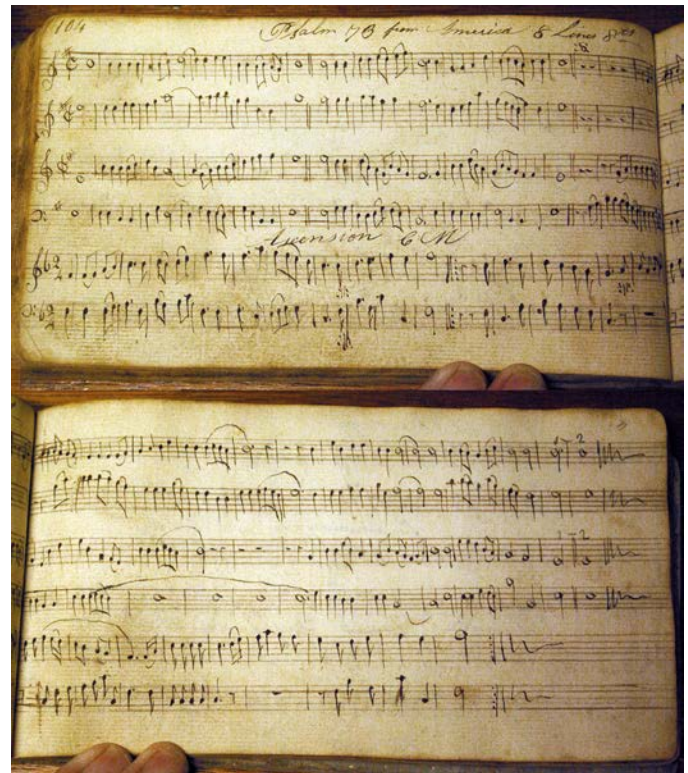 104 Psalm 78 from America 8 Lines 8ves
Ascension CM